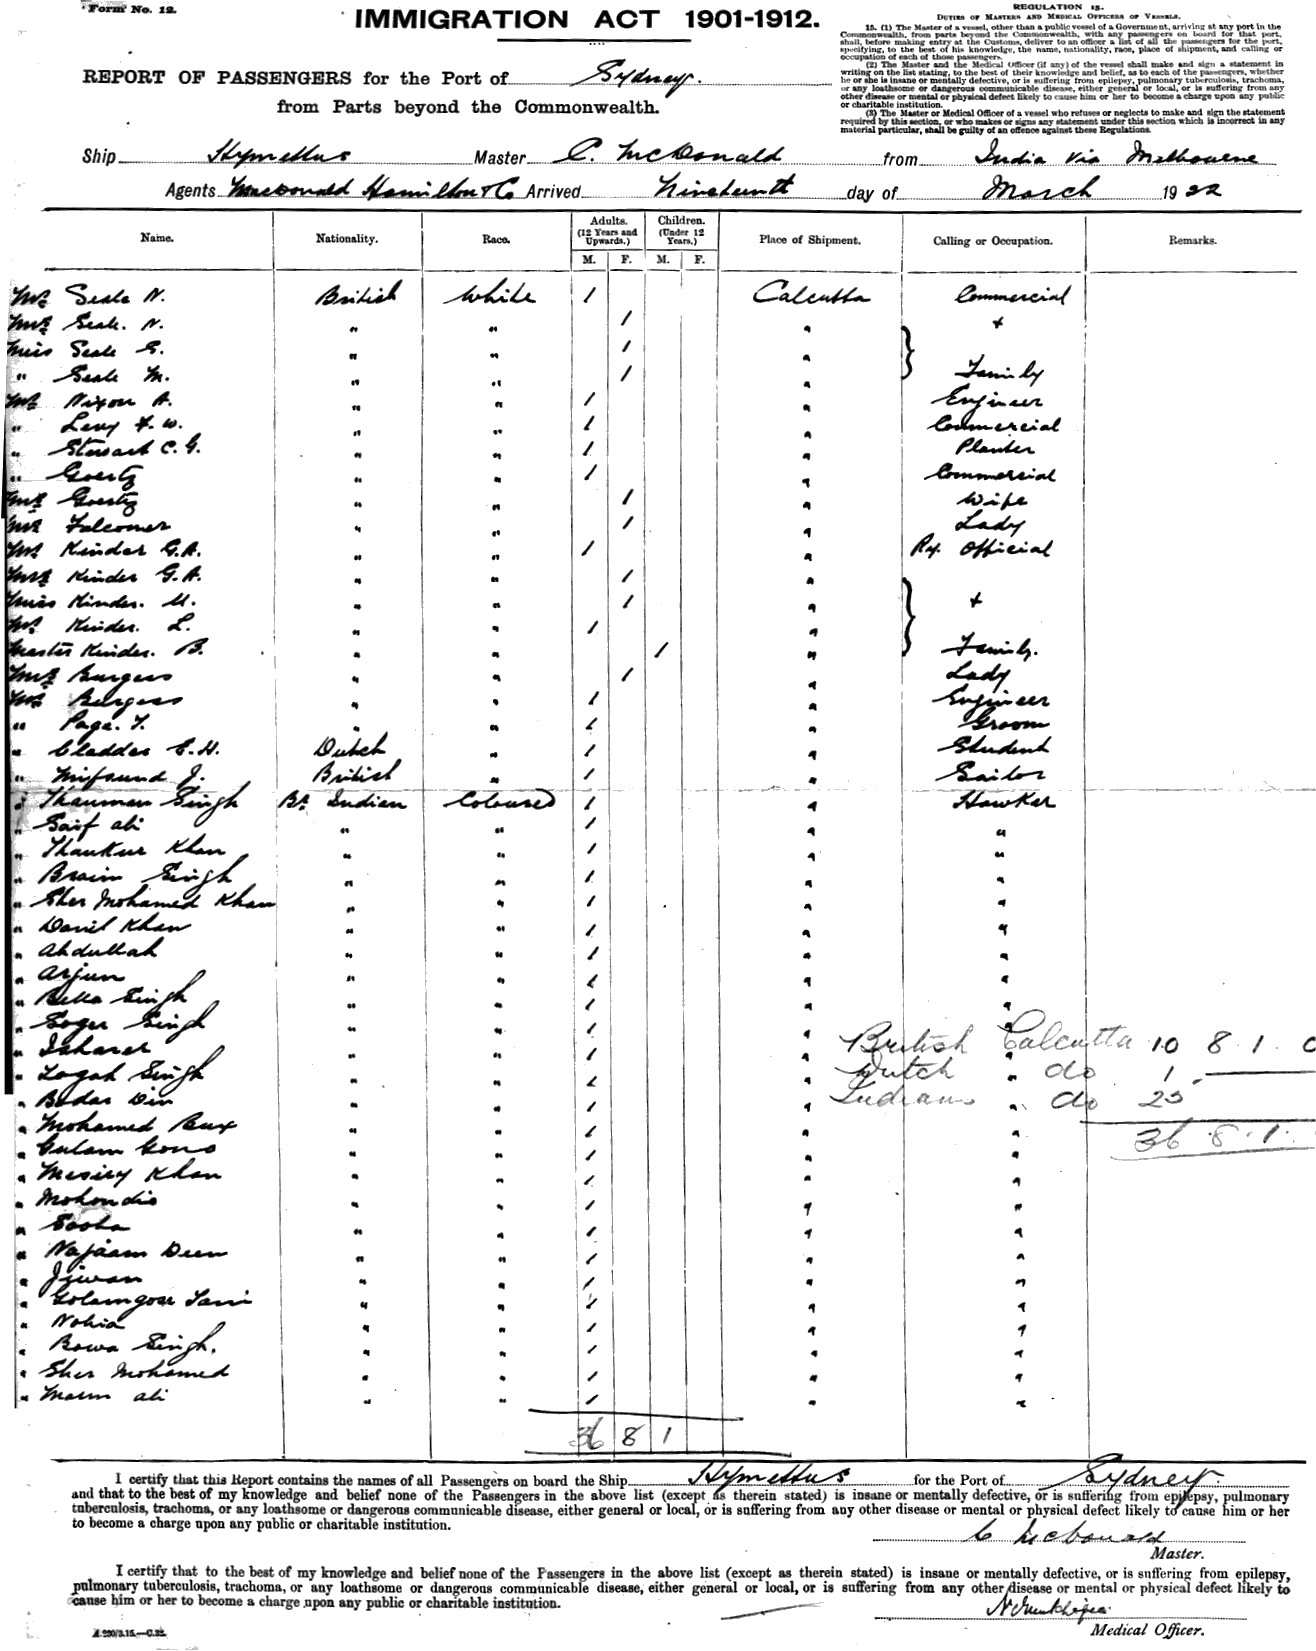 Form No. 12.
IMMIGRATION ACT 1901-1912.
REGULATION 15.
DUTIES OF MASTERS AND MEDICAL OFFICERS OF VESSELS.
15. (1) The Master of a vessel, other than a public vessel of a Government, arriving at any port in the
Commonwealth, from parts beyond the Commonwealth, with any passengers on board for that port,
shall, before making entry at the Customs, deliver to an officer a list of all the passengers for the port,
specifying, to the best of his knowledge, the name, nationality, race, place of shipment, and calling or
occupation of each of those passengers.
(2) The Master and the Medical Officer (if any) of the vessel shall make and sign a statement in
writing on the list stating, to the best of their knowledge and belief, as to each of the passengers, whether
he or she is insane or mentally defective, or is suffering from epilepsy, pulmonary tuberculosis, trachoma,
or any loathsome or dangerous communicable disease, either general or local, or is suffering from any
other disease or mental or physical defect likely to cause him or her to become a charge upon any public
or charitable institution.
(3) The Master or Medical Officer of a vessel who refuses or neglects to make and sign the statement
required by this section, or who makes or signs any statement under this section which is incorrect in any
material particular, shall be guilty of an offence against these Regulations.
REPORT OF PASSENGERS for the Port of Sydney.
from Parts beyond the Commonwealth.
Ship Hymettus Master C. McDonald from India via Melbourne
Agents Macdonald Hamilton & Co Arrived Nineteenth day of March 1922
Name. Nationality. Race. Adults. (12 Years and Upwards.) Children. (Under 12 Years.) Place of Shipment. Calling or Occupation. Remarks.
M. F. M. F.
Mr Seale N. British White 1 Calcutta Commercial
Mrs Seale. N. " " 1 " +
Miss Seale G. " " 1 "
" Seale M. " " 1 " Family
Mr Nixon A. " " 1 " Engineer
" Levy F. W. " " 1 " Commercial
" Stewart C. G. " " 1 " Planter
" Goertz " " 1 " Commercial
Mrs Goertz " " 1 " Wife
Mrs Falconer " " 1 " Lady
Mr Kinder G.A. " " 1 " Ry. Official
Mrs Kinder G.A. " " 1 "
Miss Kinder. M. " " 1 " +
Mr Kinder. L. " " 1 "
Master Kinder. B. " " 1 " Family.
Mrs Burgess " " 1 " Lady
Mr Burgess " " 1 " Engineer
" Page. T. " " 1 " Groom
" Cladder C.H. Dutch " 1 " Student
" Mifsund J. British " 1 " Sailor
" Thauman Singh Br. Indian Coloured 1 " Hawker
" Saif Ali " " 1 " "
" Thankur Khan " " 1 " "
" Braim Singh " " 1 " "
" Sher Mohamed Khan " " 1 " "
" David Khan " " 1 " "
" Abdullah " " 1 " "
" Arjun " " 1 " "
" Bella Singh " " 1 " "
" Soger Singh " " 1 " "
" Isharer " " 1 "
British Calcutta 10 8 . 1 . 0
" Logah Singh " " 1 " "
Dutch do 1
" Badar Din " " 1 " "
Indians do 25
" Mohamed Bux " " 1 " "
36 . 8 . 1 .
" Gulam Gons " " 1 " "
" Mesiry Khan " " 1 " "
" Mohondis " " 1 " "
" Sooha " " 1 " "
" Najaam Deen " " 1 " "
" Jiwan " " 1 " "
" Golamgose Jani " " 1 " "
" Nohia " " 1 " "
" Bowa Singh. " " 1 " "
" Sher Mohamed " " 1 " "
" Maun Ali " " 1 " "
36 8 1
I certify that this Report contains the names of all Passengers on board the Ship Hymettus for the Port of Sydney.
and that to the best of my knowledge and belief none of the Passengers in the above list (except as therein stated) is insane or mentally defective, or is suffering from epilepsy, pulmonary
tuberculosis, trachoma, or any loathsome or dangerous communicable disease, either general or local, or is suffering from any other disease or mental or physical defect likely to cause him or her
to become a charge upon any public or charitable institution.
C McDonald
Master.
I certify that to the best of my knowledge and belief none of the Passengers in the above list (except as therein stated) is insane or mentally defective, or is suffering from epilepsy,
pulmonary tuberculosis, trachoma, or any loathsome or dangerous communicable disease, either general or local, or is suffering from any other disease or mental or physical defect likely to
cause him or her to become a charge upon any public or charitable institution.
Medical Officer.
A.230/3.15.—C.32.